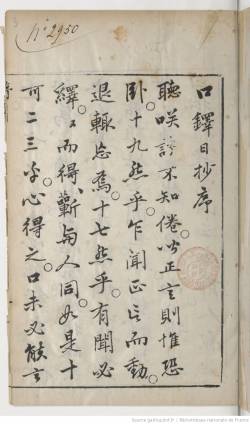 n° 2950
口鐸日抄序
聽咲不知倦以正言則惟恐
臥十九然乎乍聞正言而動
退輒忘焉十七然乎有聞必
繹〻而得蘄與人同如是十
可二三乎心得之口未必能言
Source gallica.bnf.fr / Bibliothèque nationale de France